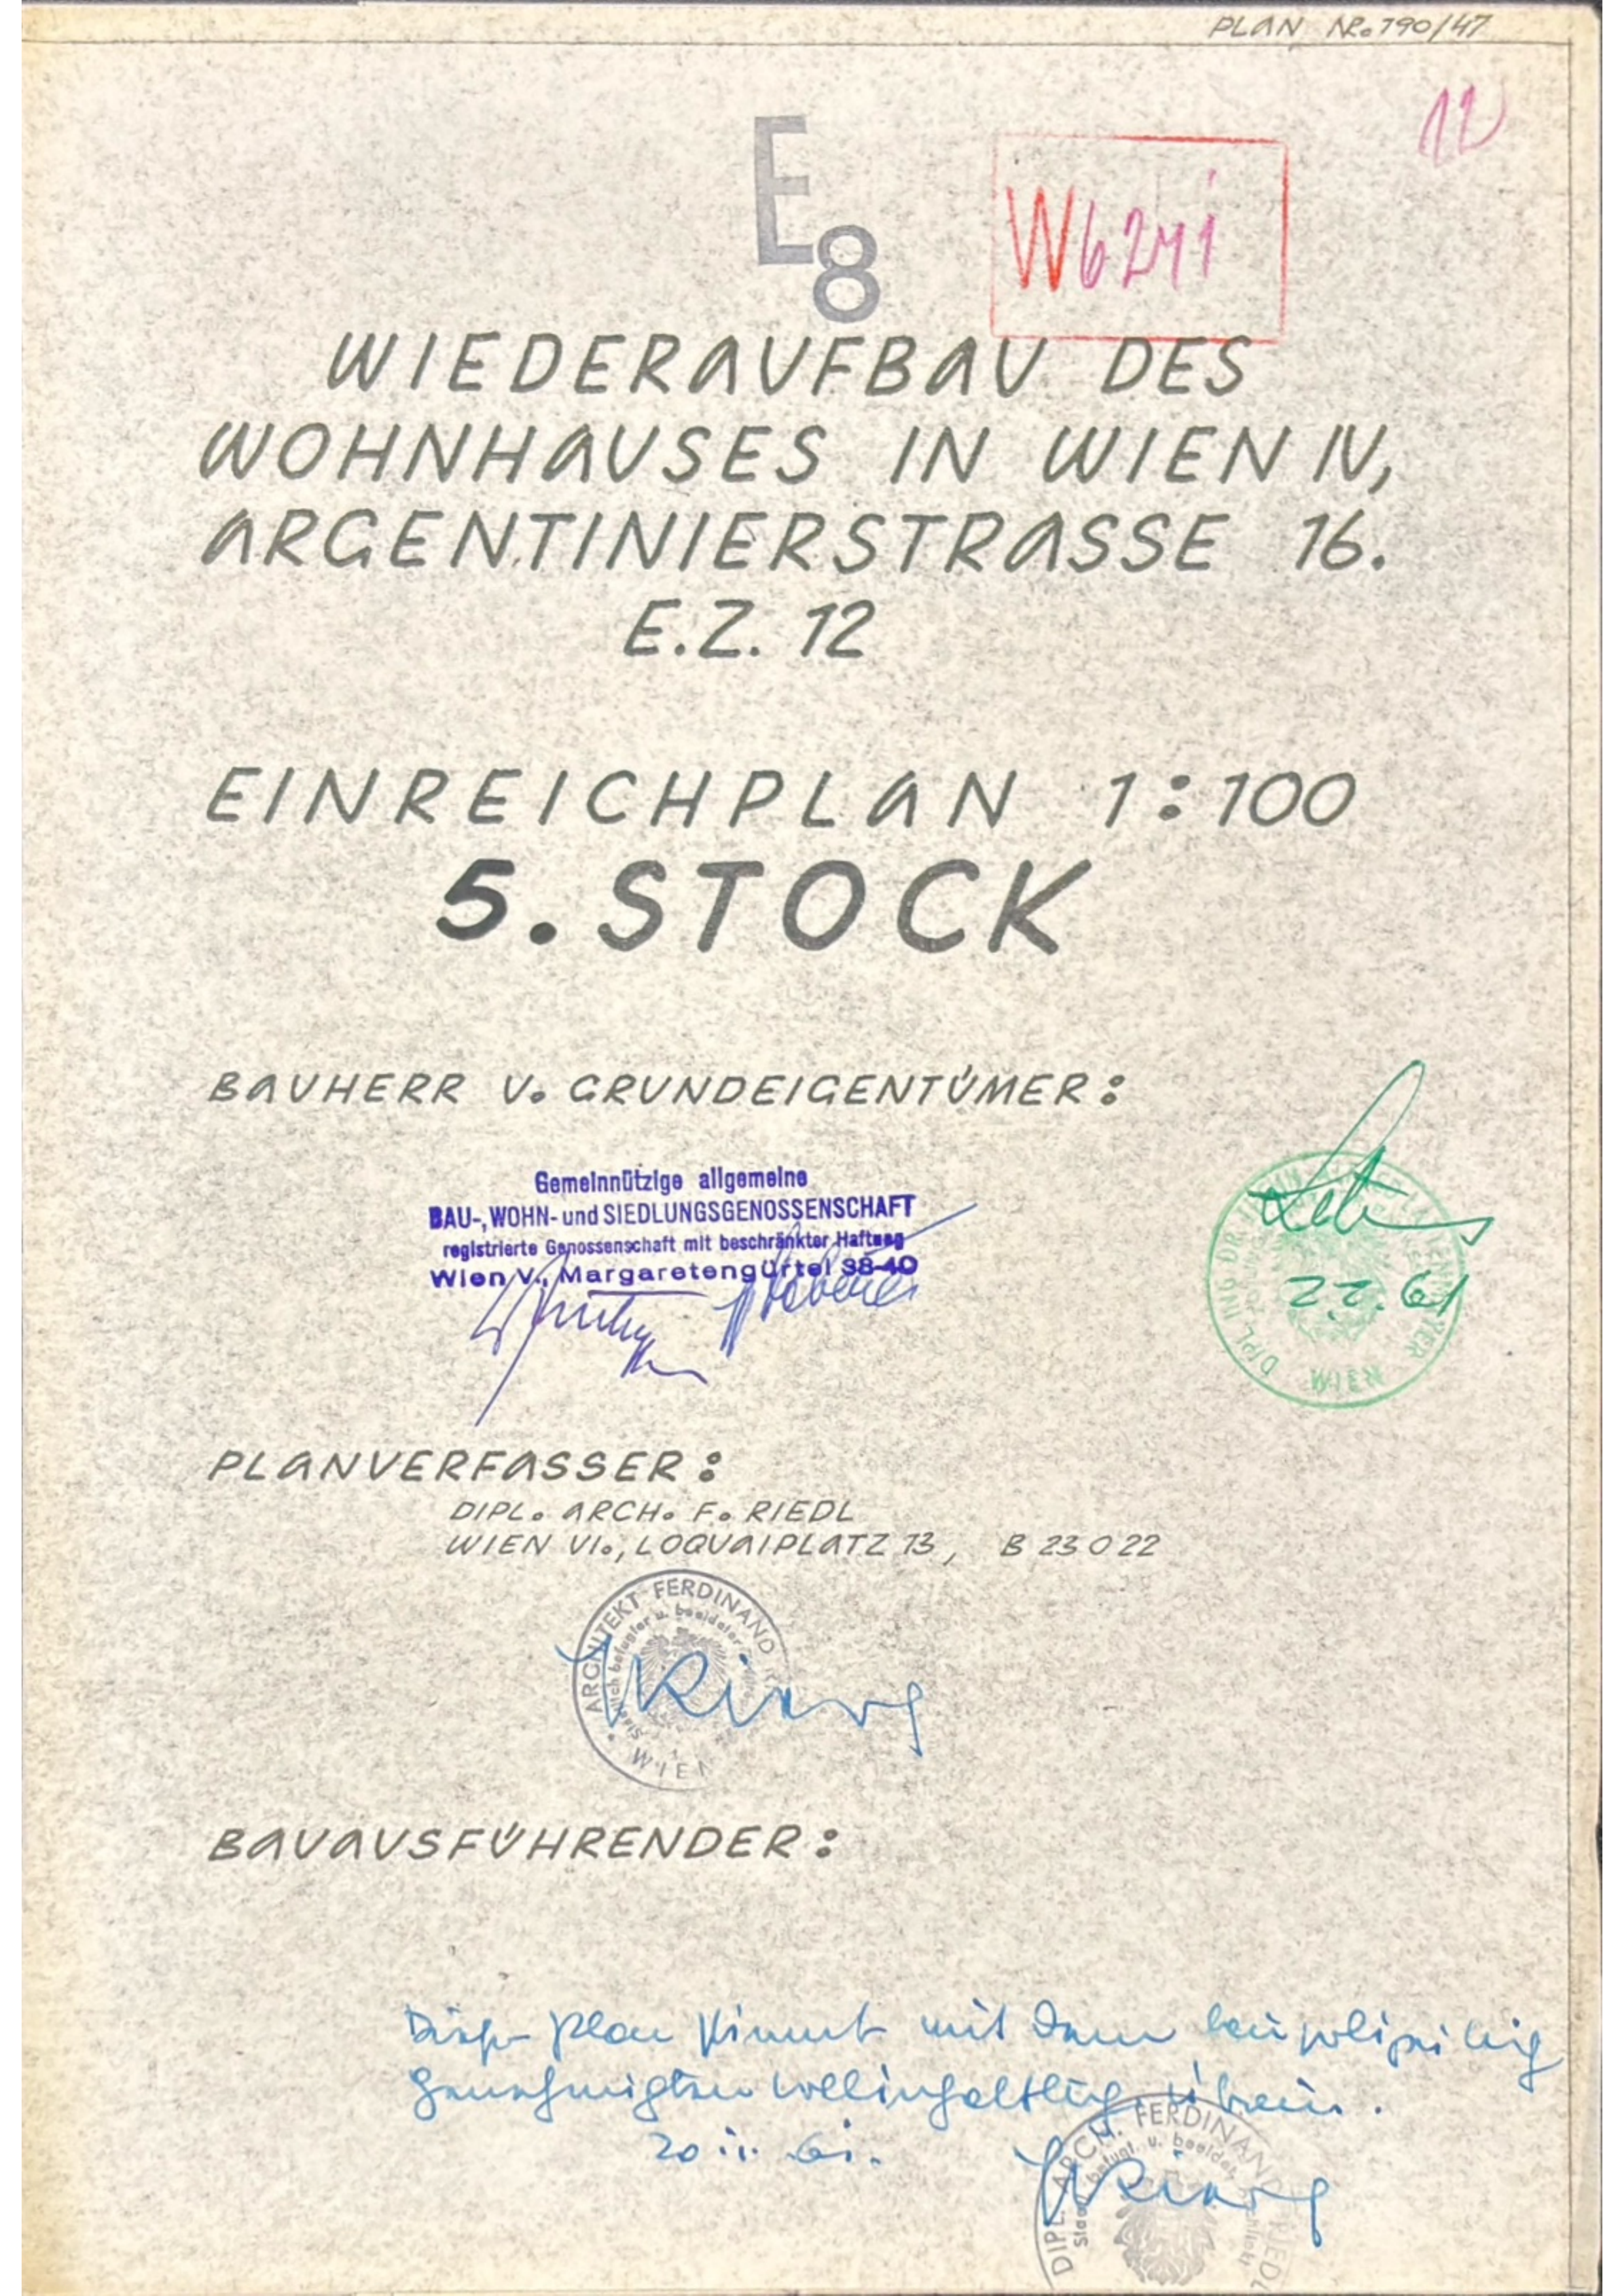 PLAN NR. 790/47
12
E8
W6241
WIEDERAUFBAU DES
WOHNHAUSES IN WIEN IV,
ARGENTINIERSTRASSE 16.
E.Z. 12
EINREICHPLAN 1:100
5. STOCK
BAUHERR U. GRUNDEIGENTÜMER:
Gemeinnützige allgemeine
BAU-, WOHN- und SIEDLUNGSGENOSSENSCHAFT
registrierte Genossenschaft mit beschränkter Haftung
Wien V., Margaretengürtel 38-40
DIPL ING DR.
2.2.61
WIEN
PLANVERFASSER:
DIPL. ARCH. F. RIEDL
WIEN VI., LOQUAIPLATZ 13, B 23 0 22
ARCHITEKT FERDINAND
Staatlich befugter u. beeideter
WIEN
BAUAUSFÜHRENDER:
Dieser Plan stimmt mit dem baupolizeilich
genehmigten vollinhaltlich überein.
DIPL. ARCH. FERDINAND RIEDL
befugt. u. beeidet.